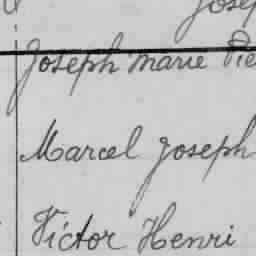 Joseph marie
Marcel Joseph
Victor Henri